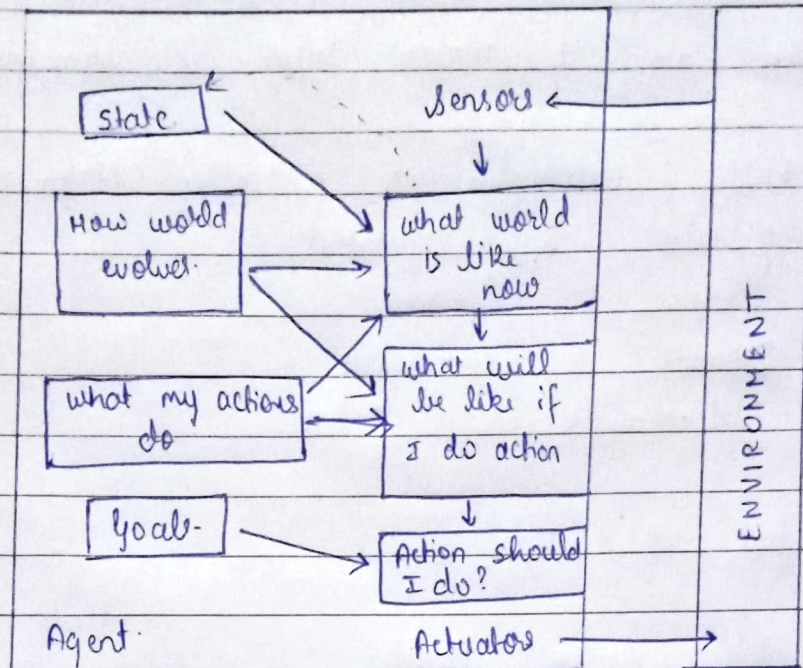 State
Sensors
How world
evolves.
what world
is like
now
what my actions
do
what will
be like if
I do action
Goals.
Action should
I do?
Agent.
Actuators
ENVIRONMENT